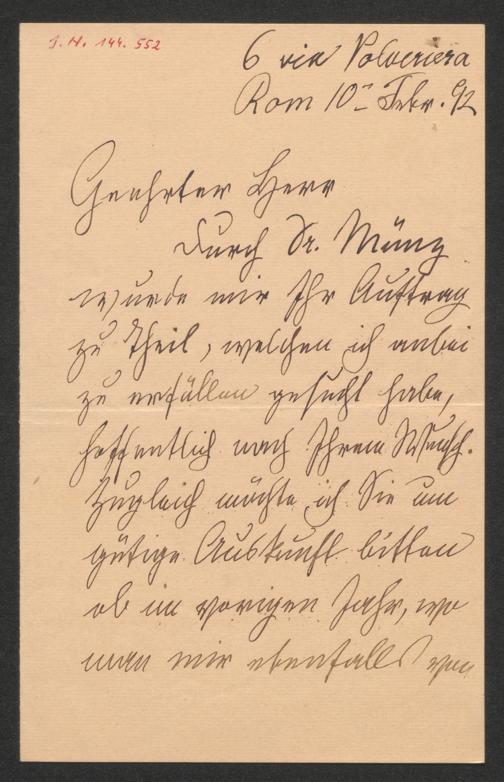 J. N. 144.552
6 via Polveriera
Rom 10ᵗ Febr. 92
Geehrter Herr
Durch Dr. Münz
wurde mir Ihr Auftrag
zu Theil, welchen ich anbei
zu erfüllen gesucht habe,
hoffentlich nach Ihrem Wunsch.
Zugleich möchte ich Sie um
gütige Auskunft bitten
ob im vorigen Jahr, wo
man mir ebenfalls von